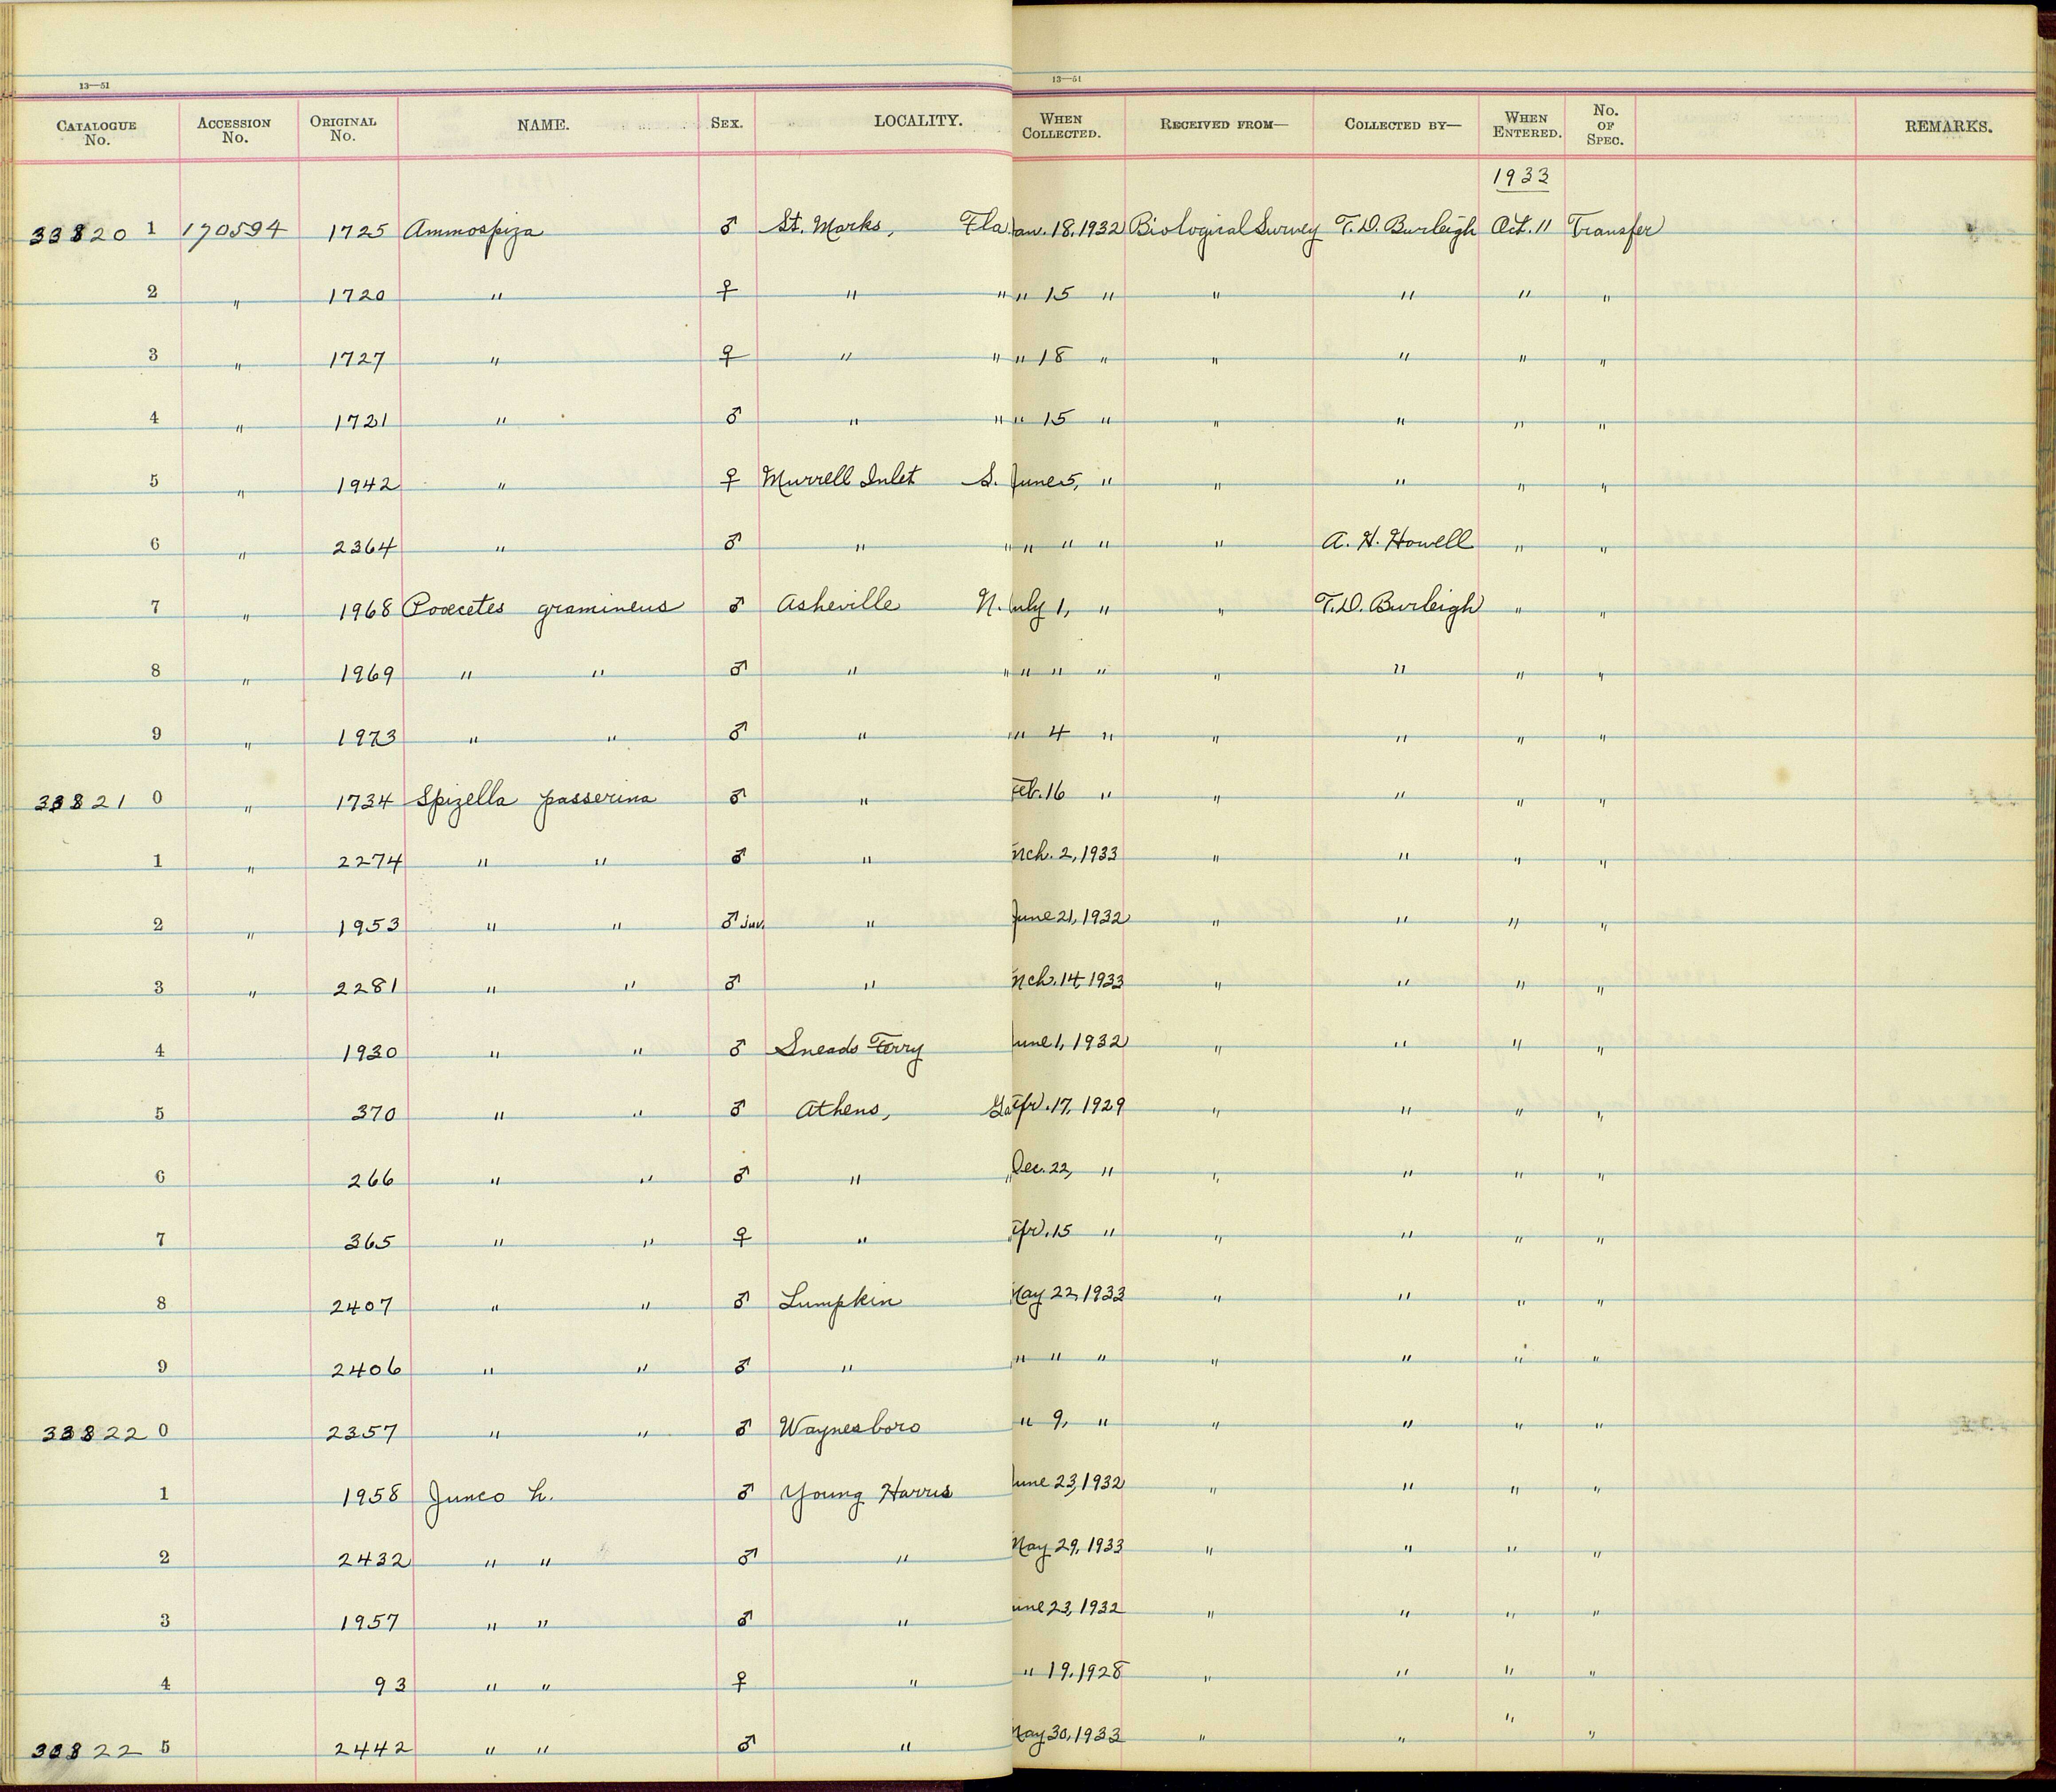 13—51 13—51
CATALOGUE No. ACCESSION No. ORIGINAL No. NAME. SEX. LOCALITY. WHEN COLLECTED. RECEIVED FROM— COLLECTED BY— WHEN ENTERED. No. OF SPEC. REMARKS.
1933
33820 1 170594 1725 Ammospiza ♂ St. Marks, Fla an. 18, 1932 Biological Survey T. D. Burleigh Oct. 11 Transfer
2 " 1720 " ♀ " " " 15 " " " " "
3 " 1727 " ♀ " " " 18 " " " " "
4 " 1721 " ♂ " " " 15 " " " " "
5 " 1942 " ♀ Murrell Inlet S. June 5, " " " " "
6 " 2364 " ♂ " " " " " " A. H. Howell " "
7 " 1968 Pooecetes gramineus ♂ Asheville N. uly 1, " " T. D. Burleigh " "
8 " 1969 " " ♂ " " " " " " " " "
9 " 1973 " " ♂ " " " 4 " " " " "
33821 0 " 1734 Spizella passerina ♂ " Feb. 16 " " " " "
1 " 2274 " " ♂ " Mch. 2, 1933 " " " "
2 " 1953 " " ♂ juv. " June 21, 1932 " " " "
3 " 2281 " " ♂ " Mch. 14 1933 " " " "
4 1930 " " ♂ Sneads Ferry June 1, 1932 " " " "
5 370 " " ♂ Athens, Ga Apr. 17, 1929 " " " "
6 266 " " ♂ " " Dec. 22, " " " " "
7 365 " " ♀ " Apr. 15 " " " " "
8 2407 " " ♂ Lumpkin May 22, 1933 " " " "
9 2406 " " ♂ " " " " " " " "
33822 0 2357 " " ♂ Waynesboro " 9, " " " " "
1 1958 Junco h. ♂ Young Harris June 23, 1932 " " " "
2 2432 " " ♂ " May 29, 1933 " " " "
3 1957 " " ♂ " une 23, 1932 " " " "
4 93 " " ♀ " " 19, 1928 " " " "
33822 5 2442 " " ♂ " May 30, 1933 " " " "